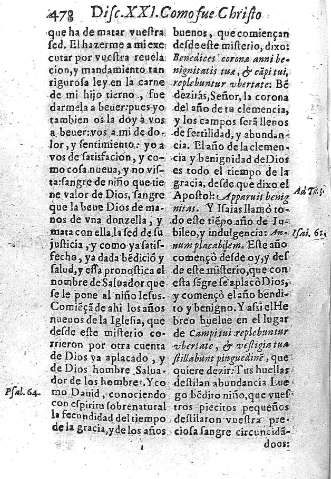 478 Disc. XXI. Como fue Christo
que ha de matar vuestra
sed. El hazerme a mi exe
cutar por vuestra reuela
cion, y mandamiento tan
rigurosa ley en la carne
de mi hijo tierno, fue
darmela a beuer: pues yo
tambien os la doy à vos
a beuer: vos a mi de do-
lor, y sentimiento: yo a
vos de satisfacion, y co-
mo cosa nueua, y no vis-
ta: sangre de niño que tie
ne valor de Dios, sangre
que la beue Dios de ma-
nos de vna donzella, y
mata con ella, la sed de su
justicia, y como ya satisf-
fecho, ya dada bēdiciō y
salud, y essa pronostica el
nombre de Saluador que
se le pone al niño Iesus.
Comiēça de ahi los años
nueuos de la Iglesia, que
desde este misterio co-
rrieron por otra cuenta
de Dios ya aplacado, y
de Dios hombre, Salua-
dor de los hombres. Y co
mo Dauid, conociendo
con espiritu sobrenatural
la fecundidad del tiempo
de la gracia, y de los años
Psal. 64.
buenos, que comiençan
desde este misterio, dixo:
Benedices corona anni be-
nignitatis tuæ, & cāpi tui,
replebuntur vbertate: Bē
dezirás, Señor, la corona
del año de tu clemencia,
y los campos serā llenos
de fertilidad, y abundan-
cia. El año de la clemen-
cia y benignidad de Dios
es todo el tiempo de la
gracia, desde que dixo el
Apostol: Apparuit benig
nitas. Y Isaias llamó to-
do este tiēpo año de Iu-
bileo, y indulgencia: An-
num placabilem. Este año
començò desde oy, y des
de este misterio, que con
esta sāgre se aplacò Dios,
y començò el año bendi-
to y benigno. Y assi el He
breo huelue en el lugar
de Campi tui replebuntur
vbertate, & vestigia tua
stillabunt pinguedinē, que
quiere dezir: Tus huellas
destilan abundancia. Lue
go bēdito niño, que vues-
tros piecitos pequeños
destilaron vuestra pre-
ciosa sangre circuncidā-
doos:
Isai. 61.